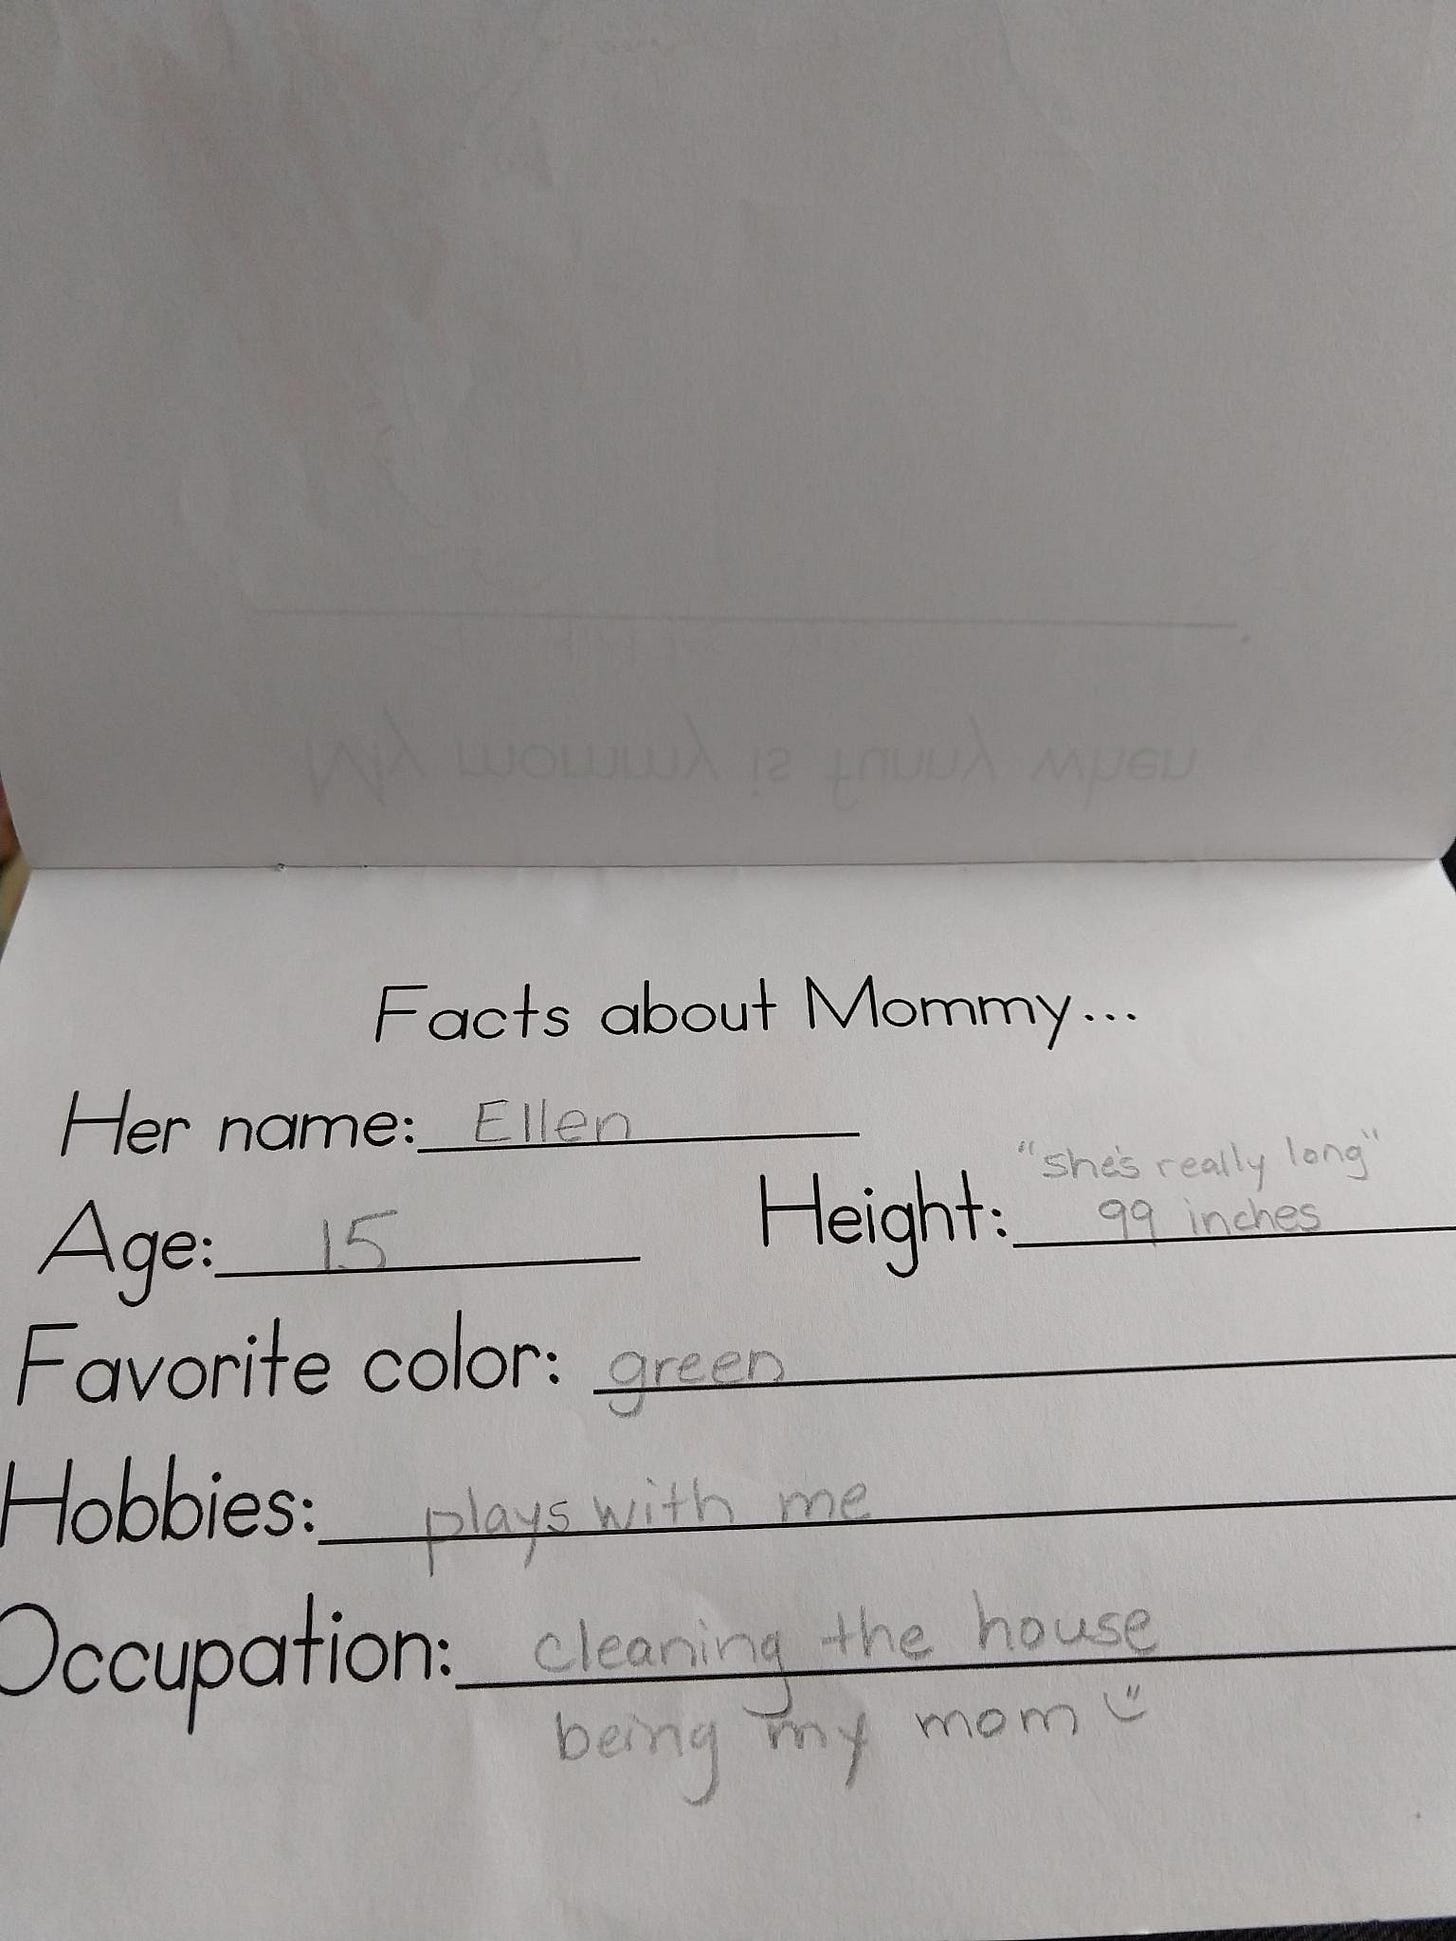 My mommy is funny when
Facts about Mommy...
Her name: Ellen
"she's really long"
Age: 15 Height: 99 inches
Favorite color: green
Hobbies: plays with me
Occupation: cleaning the house
being my mom